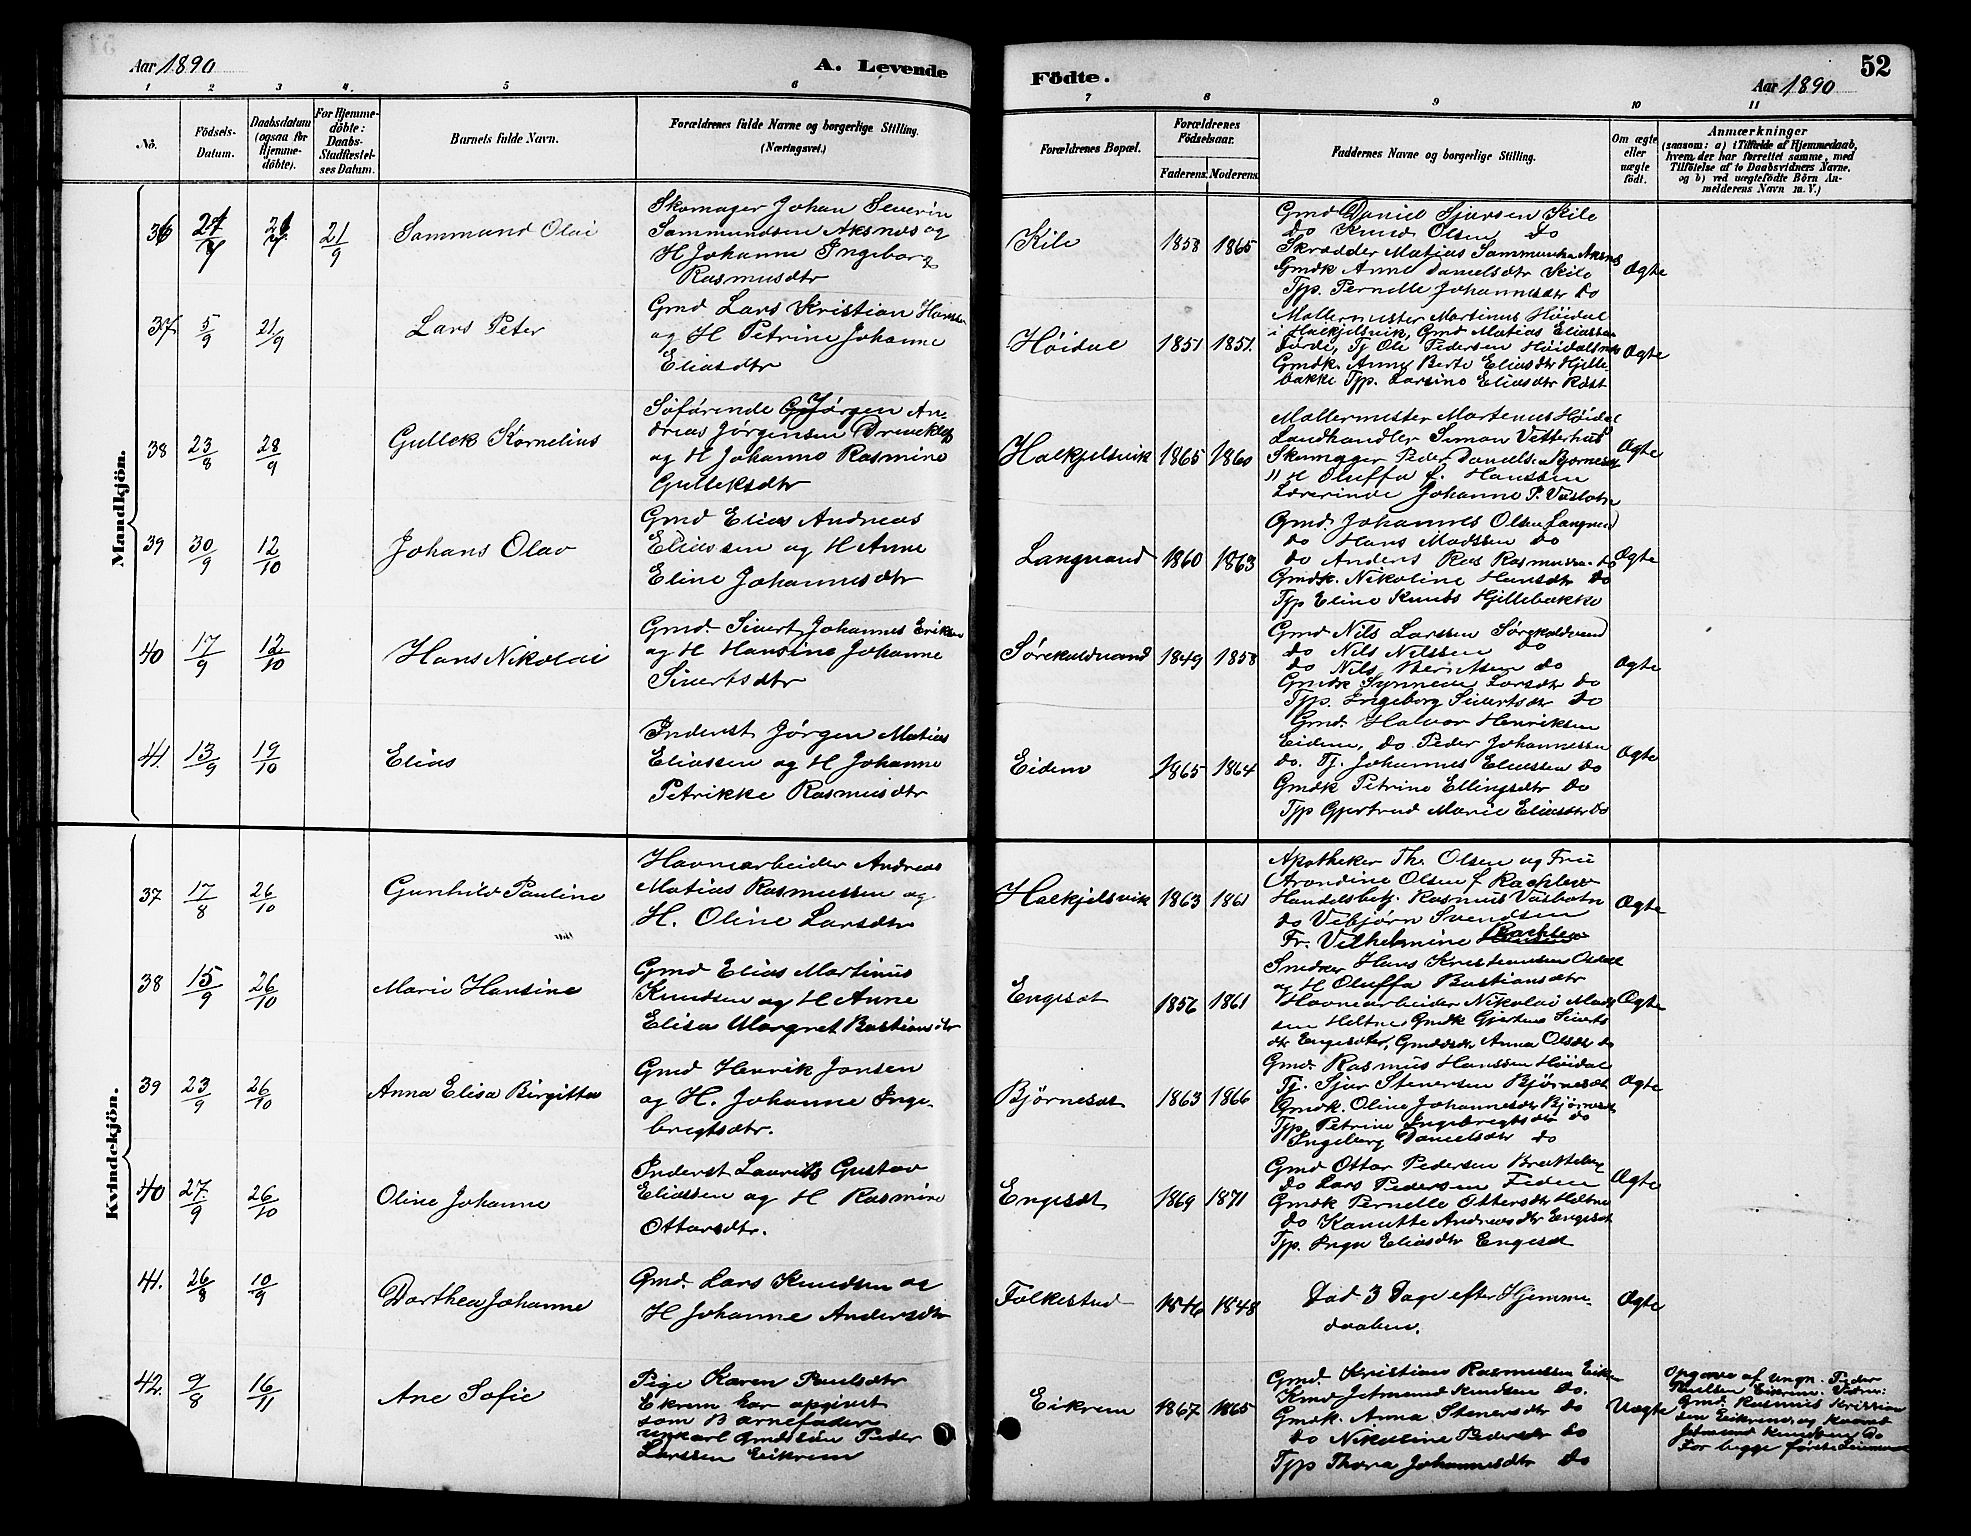 Aar 1890
A. Levende
Födte.
52
Aar 1890
1 2 3 4. 5 6 7 8 9 10 11
No.
Födsels-
Datum.
Daabsdatum
(ogsaa for
Hjemme-
döbte).
For Hjemme-
döbte:
Daabs-
Stadfæstel-
ses Datum.
Barnets fulde Navn.
Forældrenes fulde Navne og borgerlige Stilling.
(Næringsvei.)
Forældrenes Bopæl.
Forældrenes
Födselsaar.
Faderens. Moderens.
Faddernes Navne og borgerlige Stilling.
Om ægte
eller
uægte
födt.
Anmærkninger
(saasom: a) i Tilfælde af Hjemmedaab,
hvem der har forrettet samme, med
Tilföielse af to Daabsvidners Navne,
og b) ved uægtefödte Börn An-
melderens Navn m. V.)
Mandkjön.
36
21/9
Sammund Olai
Skomager Johan Severin
Sammundsen Aksnes og
H Johanne Ingeborg
Rasmusdtr
Kile
1858 1865
Gmd Daniel Sjursen Kile
do Knud Olsen do
Skrædder Matias Sammundsen Aksnes
Gmdk Anne Danielsdtr Kile
Typ. Pernelle Johannesdtr do
Ægte
37 5/9 21/9
Lars Peter
Gmd Lars Kristian Hansen
og H Petrine Johanne
Eliasdtr
Höidal
1851 1851
Møllermester Martinus Höidal
i Halkjelsvik, Gmd Matias Eliassen
Förde, Tj Ole Pedersen Höidalsnes
Gmdk. Anne Berte Eliasdtr Hjelle
bakke Typ. Larsine Eliasdtr Røst
Ægte
38 23/8 28/9
Gullek Kornelius
Söfarende Jørgen An-
dreas Jørgensen
og H Johanne Rasmine
Gulleksdtr
Halkjelsvik
1865 1860
Møllermester Martinus Höidal
Landhandler Simon Vetterhus
Skomager Peder Danielsen Bjørneset
" H Oluffa f. Hanssen
Lærerinde Johanne P. Vasbotn
Ægte
39 30/9 12/10
Johans Olav
Gmd Elias Andreas
Eliassen og H Anne
Eline Johannesdtr
Langvand
1860 1863
Gmd. Johannes Olsen Langvand
do Hans Madssen do
do Anders Ras Rasmussen do
Gmdk. Nikoline Hansdtr do
Typ Eline Knuds Hjellebakke
Ægte
40 17/9 12/10
Hans Nikolai
Gmd. Sivert Johannes Eriksen
og H Hansine Johanne
Sivertsdtr
Sørekaldvand
1849 1858
Gmd Nils Larssen Sørekaldvand
do Nils Nilssen do
do Nils do
Gmdk Synneve Larsdtr do
Typ. Ingeborg Sivertsdtr do
Ægte
41. 13/9 19/10
Elias
Inderst Jørgen Matias
Eliassen og H Johanne
Petrikke Rasmusdtr
Eidem
1865 1864
Gmd. Halvor Henriksen
Eidem, do. Peder Johannessen
do. Tj. Johannes Eliassen do
Gmdk Petrine Ellingsdtr do
Typ Gjertrud Marie Eliasdtr do
Ægte
Kvindekjön.
37 17/8 26/10
Gunhild Pauline
Havnearbeider Andreas
Matias Rasmussen og
H. Oline Larsdtr
Halkjelsvik
1863 1861
Apotheker Th. Olsen og Frue
Arondine Olsen f. Rachlew
Handelsbetj. Rasmus Vasbotn
do Vebjørn Svendsen
Fr. Vilhelmine Rachlew
Ægte
38 15/9 26/10
Marie Hansine
Gmd Elias Martinus
Knudsen og H Anne
Elisa Margret Bastiansdtr
Engeset
1856 1861
Snedker Hans Kristiansen
og H Oluffa Bastiansdtr
Havnearbeider Nikolai Mads
sen Heltne Gmdk Gjertine Siverts
dtr Engeseter, Gmddtr Anna Olsdtr do
Ægte
39 23/9 26/10
Anna Elisa Birgitte
Gmd Henrik Jonsen
og H. Johanne Inge-
brigtsdtr.
Bjørneset
1863 1866
Gmd. Rasmus Hanssen Höidal
Tj. Sjur Stenersen Bjørneset
Gmdk. Oline Johannesdtr Bjørneset
Typ. Petrine Ingebrigtsdtr do
Ingeborg Danielsdtr do
Ægte
40 27/9 26/10
Oline Johanne
Inderst Laurits Gustav
Eliassen og H Rasmine
Ottarsdtr.
Engeset
1869 1871
Gmd Ottar Pedersen Bratteberg
do Lars Pedersen Eidem
Gmdk Pernelle Ottersdtr Heltne
do Kanutte Andreasdtr Engeset
Typ. Inga Eliasdtr Engeset
Ægte
41. 26/8 10/9
Dorthea Johanne
Gmd. Lars Knudsen og
H Johanne Andersdtr
Folkestad
1846 1848
Död 3 Dage efter Hjemme-
daaben.
Ægte
42. 9/8 16/11
Ane Sofie
Pige Karen Paulsdtr
Ekrem har opgivet
som Barnefader
ungkarl Gmdssön Peder
Larssen Eikrem
Eikrem
1867 1865
Gmd. Kristian Rasmussen Eikrem
Kmd Jetmund Knudsen do.
Gmdk. Anna Stenersdtr do
do Nikoline Pedersdtr do
Typ Thora Johannesdtr do
Uægte
Opgave af ungk. Peder
Paulsen Eikrem. Vidner:
Gmd. Rasmus Kristian
sen Eikrem og Kaarmd
Jetmund Knudsen do
For begge første Leiermaal